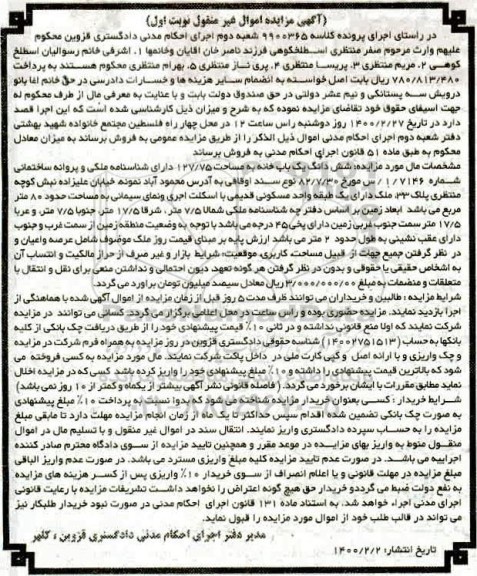 (آگهی مزایده اموال غیر منقول نوبت اول)
در راستای اجرای پرونده کلاسه ۹۹۰۰۳۶۵ شعبه دوم اجرای احکام مدنی دادگستری قزوین محکوم
علیهم وارث مرحوم صفر منتظری اسطلخکوهی فرزند ناصر خان اقایان وخانمها ۱. اشرفی خانم رسوالیان اسطلخ
کوهی ۲. مریم منتظری ۳. پریسا منتظری ۴. پری ناز منتظری ۵. بهرام منتظری محکوم هستند به پرداخت
۷۸۰/۸۱۳/۴۸۰ ریال بابت اصل خواسته به انضمام سایر هزینه ها و خسارات دادرسی در حق خانم اغا بانو
درویش سه پستانکی و نیم عشر دولتی در حق صندوق دولت بابت و با عنایت به معرفی مال از طرف محکوم له
جهت اسیفای حقوق خود تقاضای مزایده نموده که به شرح و میزان ذیل کارشناسی شده است که این اجرا قصد
دارد در تاریخ ۱۴۰۰/۲/۲۷ روز دوشنبه راس ساعت ۱۲ در محل چهار راه فلسطین مجتمع خانواده شهید بهشتی
دفتر شعبه دوم اجرای احکام مدنی اموال ذیل الذکر را از طریق مزایده عمومی به فروش برساند به میزان معادل
محکوم به طبق ماده ۵۱ قانون اجرای احکام مدنی به فروش برساند
مشخصات مال مورد مزایده: شش دانگ یک باب خانه به مساحت ۱۲۷/۷۵ دارای شناسنامه ملکی و پروانه ساختمانی
شماره ۱/۷۱۴۶/س مورخ ۸۲/۷/۳۰ نوع سند اوقافی به آدرس محمود آباد نمونه خیابان علیزاده نبش کوچه
افتخاری پلاک ۳۳، ملک دارای یک طبقه واحد مسکونی قدیمی با اسکلت اجری ونمای سیمانی به مساحت حدود ۸۰ متر
مربع می باشد ابعاد زمین بر اساس دفتر چه شناسنامه ملکی شمالا ۷/۵ متر، شرقا ۱۷/۵ متر، جنوبا ۷/۵ متر، و غربا
۱۷/۵ متر سمت جنوب غربی زمین دارای پخی ۴۵ درجه می باشد با توجه به وضعیت منطقه زمین از سمت غرب و جنوب
دارای عقب نشینی به طول حدود ۲ متر می باشد ارزش پایه بر مبنای قیمت روز ملک موضوف شامل عرصه واعیان و
در نظر گرفتن جمیع جهات از قبیل مساحت، کاربری، موقعیت، شرایط بازار و غیر صرف از حراز مالکیت و انتساب آن
به اشخاص حقیقی یا حقوقی و بدون در نظر گرفتن هر گونه تعهد، دیون احتمالی و نداشتن منعی برای نقل و انتقال با
متعلقات و منضمات به مبلغ ۳/۰۰۰/۰۰۰/۰۰۰ ریال معادل سیصد میلیون تومان برآورد می گردد.
شرایط مزایده: طالبین و خریداران می توانند ظرف مدت ۵ روز قبل از زمان مزایده از اموال آگهی شده با هماهنگی از
اجرا بازدید نمایند. مزایده حضوری بوده و راس ساعت و در محل اعلامی برگزار می گردد. کسانی می توانند در مزایده
شرکت نمایند که اولا منع قانونی نداشته و در ثانی ۱۰٪ قیمت پیشنهادی خود را از طریق دریافت چک بانکی از کلیه
بانکها به حساب (۱۴۰۰۲۷۵۱۵۱۳) شناسه حقوقی دادگستری قزوین در روز مزایده به همراه فرم شرکت در مزایده
و چک واریزی و با ارائه اصل و کپی کارت ملی در داخل پاکت شرکت نمایند. مال مورد مزایده به کسی فروخته می
شود که بالاترین قیمت پیشنهادی را داشته و ۱۰٪ مبلغ پیشنهادی خود را واریز کرده باشد. کسی که در مزایده اخلال
نماید مطابق مقررات با ایشان برخورد می گردد. (فاصله قانونی نشر آگهی بیشتر از یکماه و کمتر از ۱۰ روز نمی باشد)
شرایط خریدار: کسی بعنوان خریدار مزایده شناخته می شود که بدوا نسبت به پرداخت ۱۰٪ مبلغ پیشنهادی
به صورت چک بانکی تضمین شده اقدام سپس حداکثر تا یک ماه از زمان انجام مزایده مهلت دارد تا مابقی مبلغ
مزایده را به حساب سپرده دادگستری واریز نمایند. انتقال سند در اموال غیر منقول و با تسلیم مال در اموال
منقول منوط به واریز بهای مزایده در موعد مقرر و همچنین تایید مزایده از سوی دادگاه محترم صادر کننده
اجراییه می باشد. در صورت عدم تایید مزایده کلیه مبلغ واریزی مسترد می باشد. در صورت عدم واریز الباقی
مبلغ مزایده در مهلت قانونی و یا اعلام انصراف از سوی خریدار ۱۰٪ واریزی پس از کسر هزینه های مزایده
به نفع دولت ضبط می گردد و خریدار حق هیچ گونه اعتراض را نخواهد داشت تشریفات مزایده با رعایت قانونی
اجرای مدنی اجراء خواهد شد. به استناد ماده ۱۳۱ قانون اجرای احکام مدنی در صورت نبود خریدار طلبکار نیز
می تواند در قالب طلب خود از اموال مورد مزایده را قبول نماید.
مدیر دفتر اجرای احکام مدنی دادگستری قزوین، کلهر
تاریخ انتشار: ۱۴۰۰/۲/۲